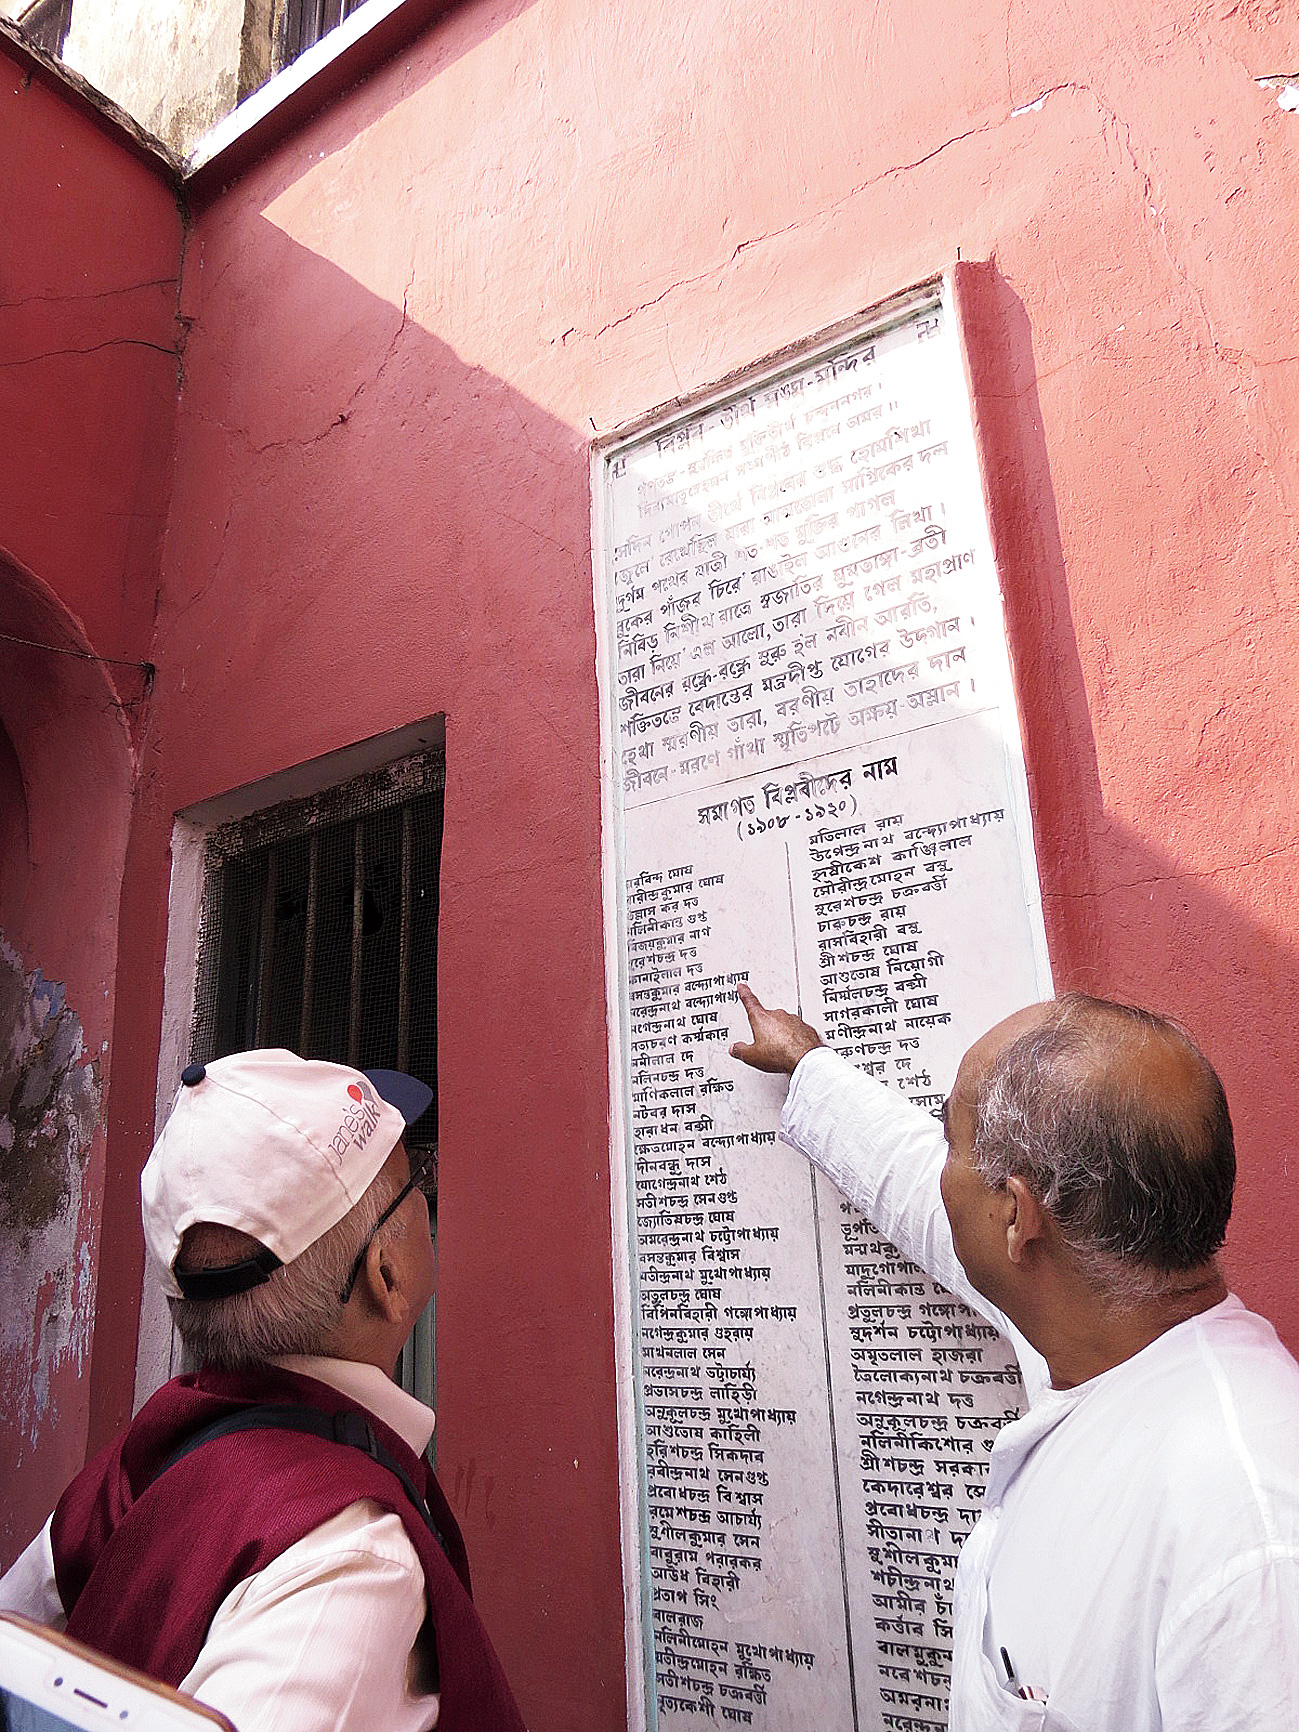 বিপ্লব-তীর্থ সঙ্ঘ-মন্দির
মুক্তিতীর্থ চন্দননগর।
বিপ্লবে অমর॥
সেদিন গোপন তীর্থে বিপ্লবের শুদ্ধ হোমশিখা
জ্বেলে রেখেছিল যারা সাগ্নিকের দল
দুর্গম পথের যাত্রী শত-শত মুক্তির পাগল
বুকের পাঁজর চিরে' রাঙাইল আগুনের লিখা।
নিবিড় নিশীথ রাত্রে স্বজাতির ঘুমভাঙ্গা-ব্রতী
তারা নিয়ে' এল আলো, তারা দিয়ে গেল মহাপ্রাণ
জীবনের রন্ধ্রে-রন্ধ্রে সুরু হ'ল নবীন আরতি,
শক্তিতন্ত্রে বেদান্তের মন্ত্রদীপ্ত যোগের উদগান।
হেথা স্মরণীয় তারা, বরণীয় তাহাদের দান
জীবনে-মরণে গাঁথা স্মৃতিপটে অক্ষয়-অম্লান।
সমাগত বিপ্লবীদের নাম
(১৯০৮-১৯২০)
অরবিন্দ ঘোষ
বারীন্দ্রকুমার ঘোষ
উল্লাস কর দত্ত
নলিনীকান্ত গুপ্ত
বিজয়কুমার নাগ
সুরেশচন্দ্র দত্ত
কানাইলাল দত্ত
বসন্তকুমার বন্দ্যোপাধ্যায়
নরেন্দ্রনাথ বন্দ্যোপাধ্যায়
নগেন্দ্রনাথ ঘোষ
সত্যচরণ কর্ম্মকার
ননীলাল দে
নলিনচন্দ্র দত্ত
মাণিকলাল রক্ষিত
নটবর দাস
হারাধন বক্সী
ক্ষেত্রমোহন বন্দ্যোপাধ্যায়
দীনবন্ধু দাস
যোগেন্দ্রনাথ শেঠ
সতীশচন্দ্র সেনগুপ্ত
জ্যোতিষচন্দ্র ঘোষ
অমরেন্দ্রনাথ চট্টোপাধ্যায়
বসন্তকুমার বিশ্বাস
যতীন্দ্রনাথ মুখোপাধ্যায়
অতুলচন্দ্র ঘোষ
বিপিনবিহারী গঙ্গোপাধ্যায়
নগেন্দ্রকুমার গুহরায়
মাখনলাল সেন
নরেন্দ্রনাথ ভট্টাচার্য্য
প্রভাসচন্দ্র লাহিড়ী
অনুকূলচন্দ্র মুখোপাধ্যায়
আশুতোষ কাহিলী
হরিশচন্দ্র সিকদার
রবীন্দ্রনাথ সেনগুপ্ত
প্রবোধচন্দ্র বিশ্বাস
রমেশচন্দ্র আচার্য্য
সুশীলকুমার সেন
বাবুরাম পরারকর
আউধ বিহারী
প্রতাপ সিং
বালরাজ
নলিনীমোহন মুখোপাধ্যায়
যতীন্দ্রমোহন রক্ষিত
সতীশচন্দ্র চক্রবর্ত্তী
নৃত্যকেশী ঘোষ
মতিলাল রায়
উপেন্দ্রনাথ বন্দ্যোপাধ্যায়
হৃষীকেশ কাঞ্জিলাল
সৌরীন্দ্রমোহন বসু
সুরেশচন্দ্র চক্রবর্ত্তী
চারুচন্দ্র রায়
রাসবিহারী বসু
শ্রীশচন্দ্র ঘোষ
আশুতোষ নিয়োগী
নির্ম্মলচন্দ্র বক্সী
সাগরকালী ঘোষ
মণীন্দ্রনাথ নায়েক
রুণচন্দ্র দত্ত
শ্বর দে
শেঠ
সোম
ভূপতি
মন্মথকু
যাদুগোপা
নলিনীকান্ত ঘো
প্রতুলচন্দ্র গঙ্গোপা
সুদর্শন চট্টোপাধ্যায়
অমৃতলাল হাজরা
ত্রৈলোক্যনাথ চক্রবর্ত্তী
নগেন্দ্রনাথ দত্ত
অনুকূলচন্দ্র চক্রবর্ত্তী
নলিনীকিশোর গু
শ্রীশচন্দ্র সরকার
কেদারেশ্বর সে
প্রবোধচন্দ্র দা
সীতানাথ দ
সুশীলকুমা
শচীন্দ্রনাথ
আমীর চাঁ
কর্ত্তার সি
বালমুকুন
নরেশচন্দ্র
অমরনাথ
নরেন্দ্রন
Jane's
walk